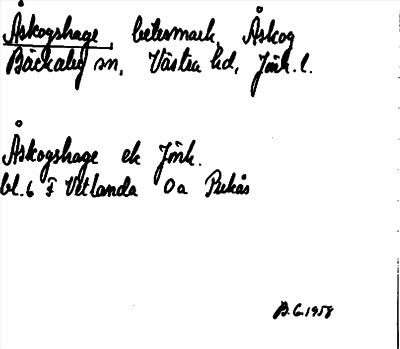 Åskogshage, betesmark, Åskog
Bäckaby sn, Västra hd, Jönk. l.
Åskogshage ek Jönk.
bl. 6 F Vetlanda 0a Pukås
B.G. 1958